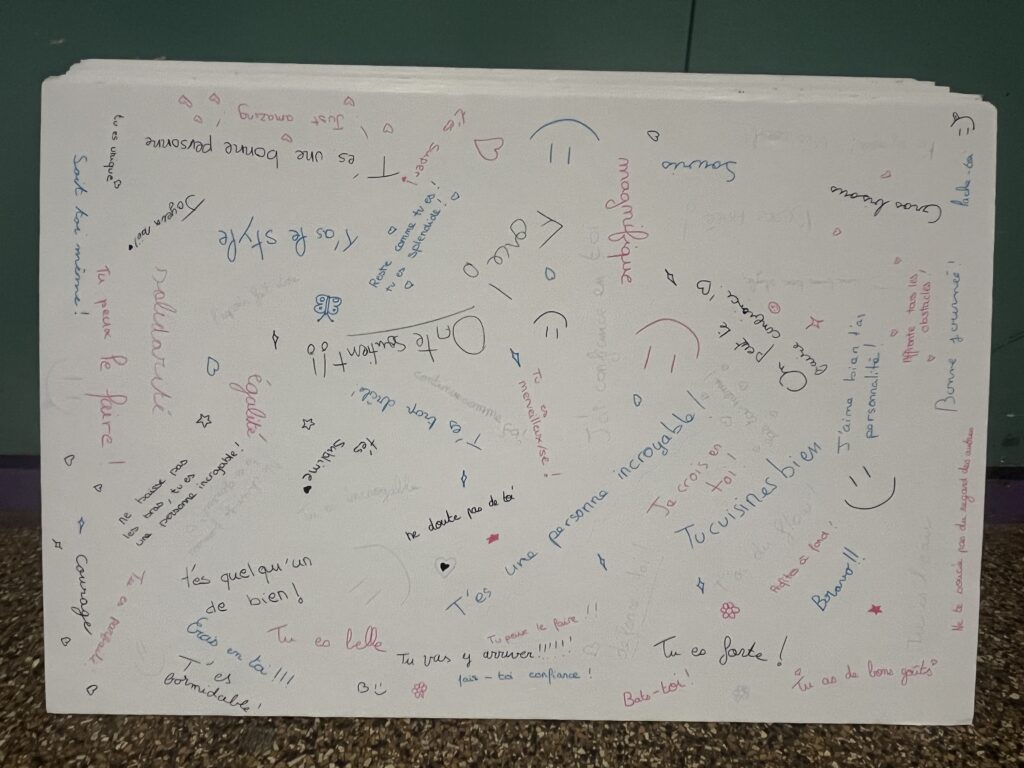 Just amazing
tu es unique
T'es une bonne personne
t'es
Super!
Souris
magnifique
Gros bisous
lache-toi
Soit toi même!
Joyeux noël
T'as le style
Reste comme tu es!
tu es splendide!
Force
Tu peux le faire!
solidarité
On te soutient!!
On peut te
faire confiance!
Affronte tous les
obstacles!
Bonne journée!
J'aime bien ta
personnalité!
égalité
T'es trop drôle
continue comme ça
Tu es
merveilleuse!
J'ai confiance en toi
t'es
Sublime
ne baisse pas
les bras, tu es
une personne incroyable!
ne doute pas de toi
T'es une personne incroyable!
Je crois en
toi!
Tu cuisines bien
Profites à fond!
Bravo!!
Ne te soucie pas du regard des autres
Courage
t'es quelqu'un
de bien!
Crois en toi!!!
T'es
formidable!
Tu es belle
Tu peux le faire!!
Tu vas y arriver!!!!!!
fais-toi confiance!
Tu es forte!
Bats-toi!
Tu as de bons goûts